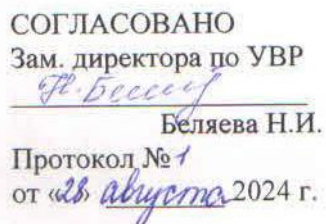 СОГЛАСОВАНО
Зам. директора по УВР
Беляева Н.И.
Протокол №1
от «28» августа 2024 г.